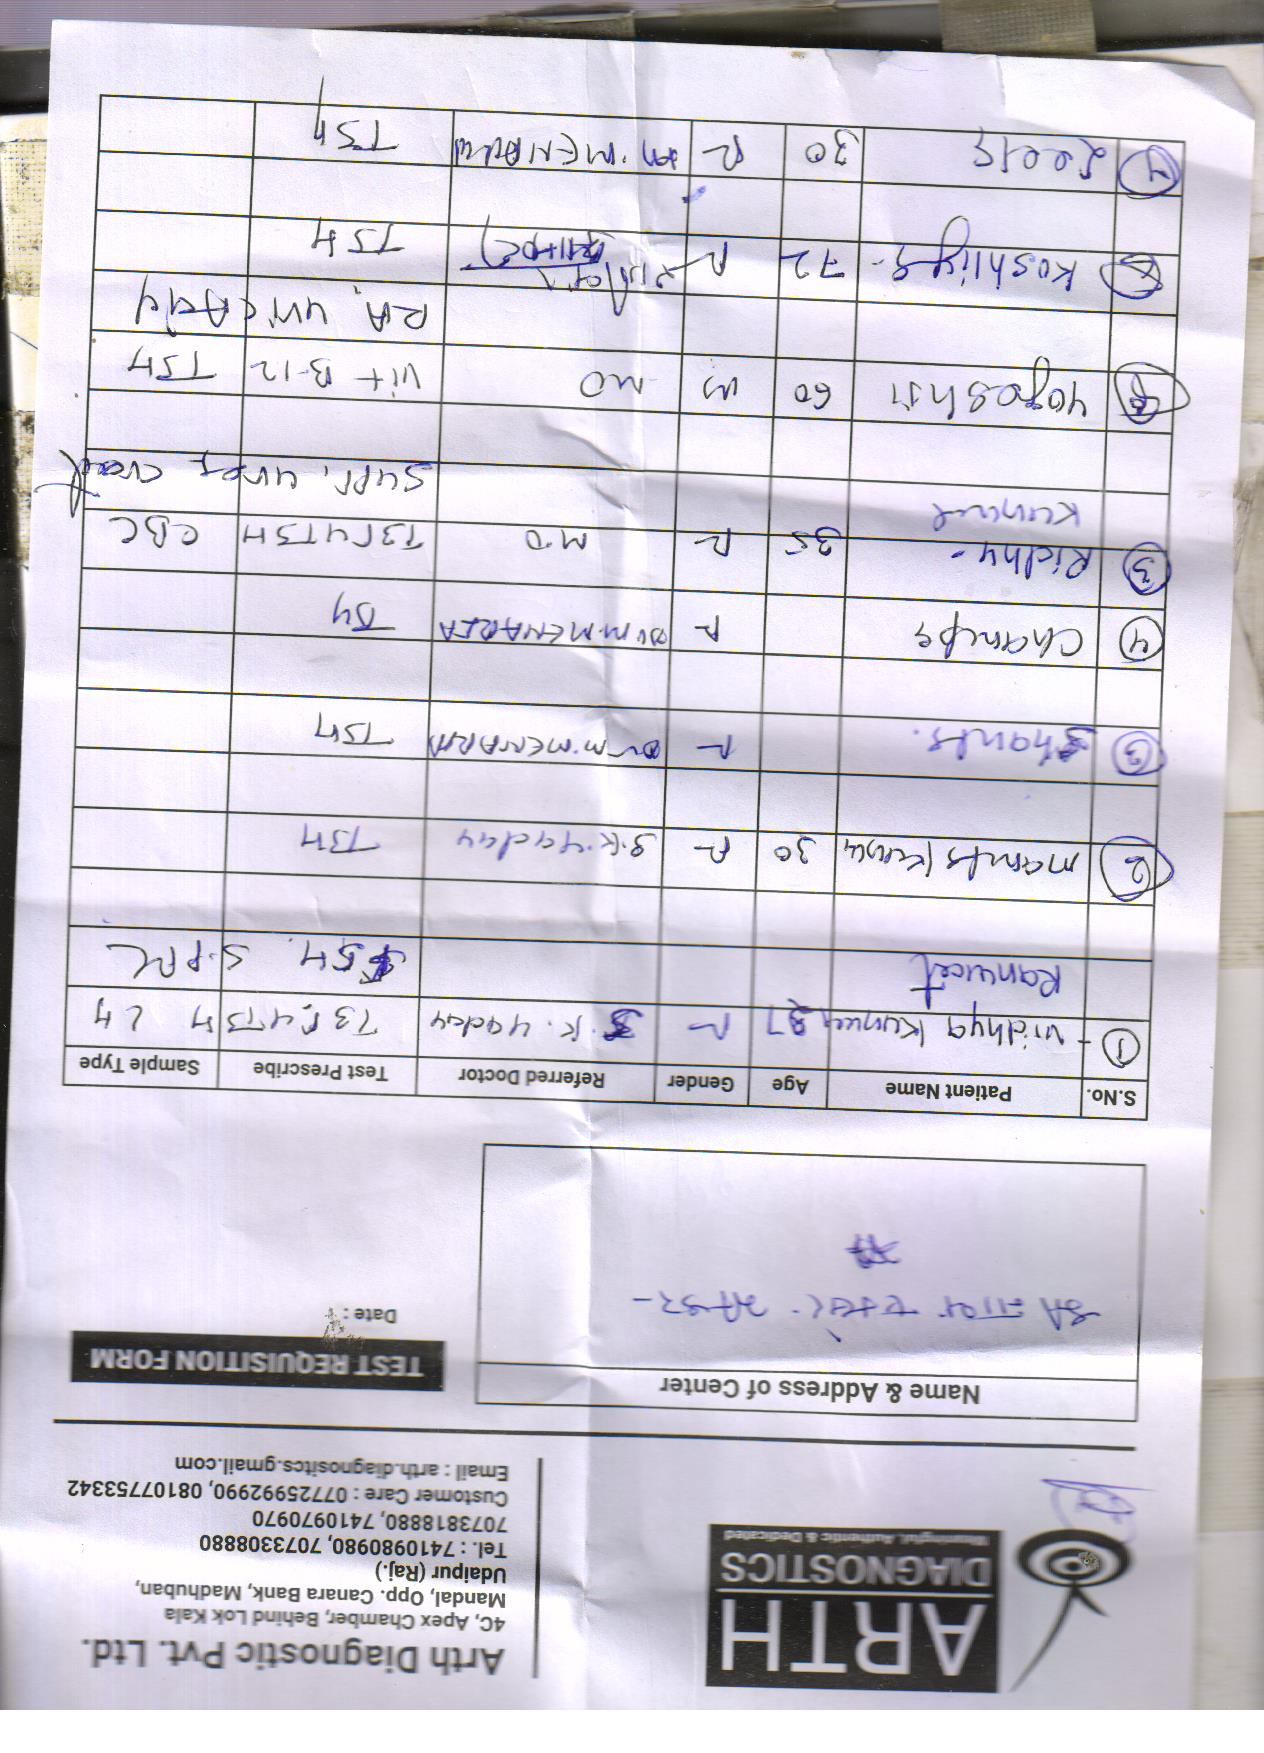 ARTH
DIAGNOSTICS
Meaningful, Authentic & Dedicated
Arth Diagnostic Pvt. Ltd.
4C, Apex Chamber, Behind Lok Kala
Mandal, Opp. Canara Bank, Madhuban,
Udaipur (Raj.)
Tel. : 7410980980, 7073308880
7073818880, 7410970970
Customer Care : 07725992990, 08107753342
Email : arth.diagnositcs.gmail.com
Name & Address of Center
TEST REQUISITION FORM
Date :
S.No. Patient Name Age Gender Referred Doctor Test Prescribe Sample Type
1 Vidhya Kunwer 37 F S.K. yadav T3T4TSH LH
Ranwcet FSH. S.PRL
2 30 F S.K. yadav TSH
3 Shanta. F Dr M. MENARIA TSH
4 Champa F Dr M. MENARIA
3 Ridhy- 35 F MD T3T4TSH CBC
Kunwer SGPT, urea, creat
Yogesh Ji 60 M MD Vit B-12 TSH
RA, uric Acid
Koshliya- 72 F TSH
7 Leela 30 F Dr. MENARIA TSH